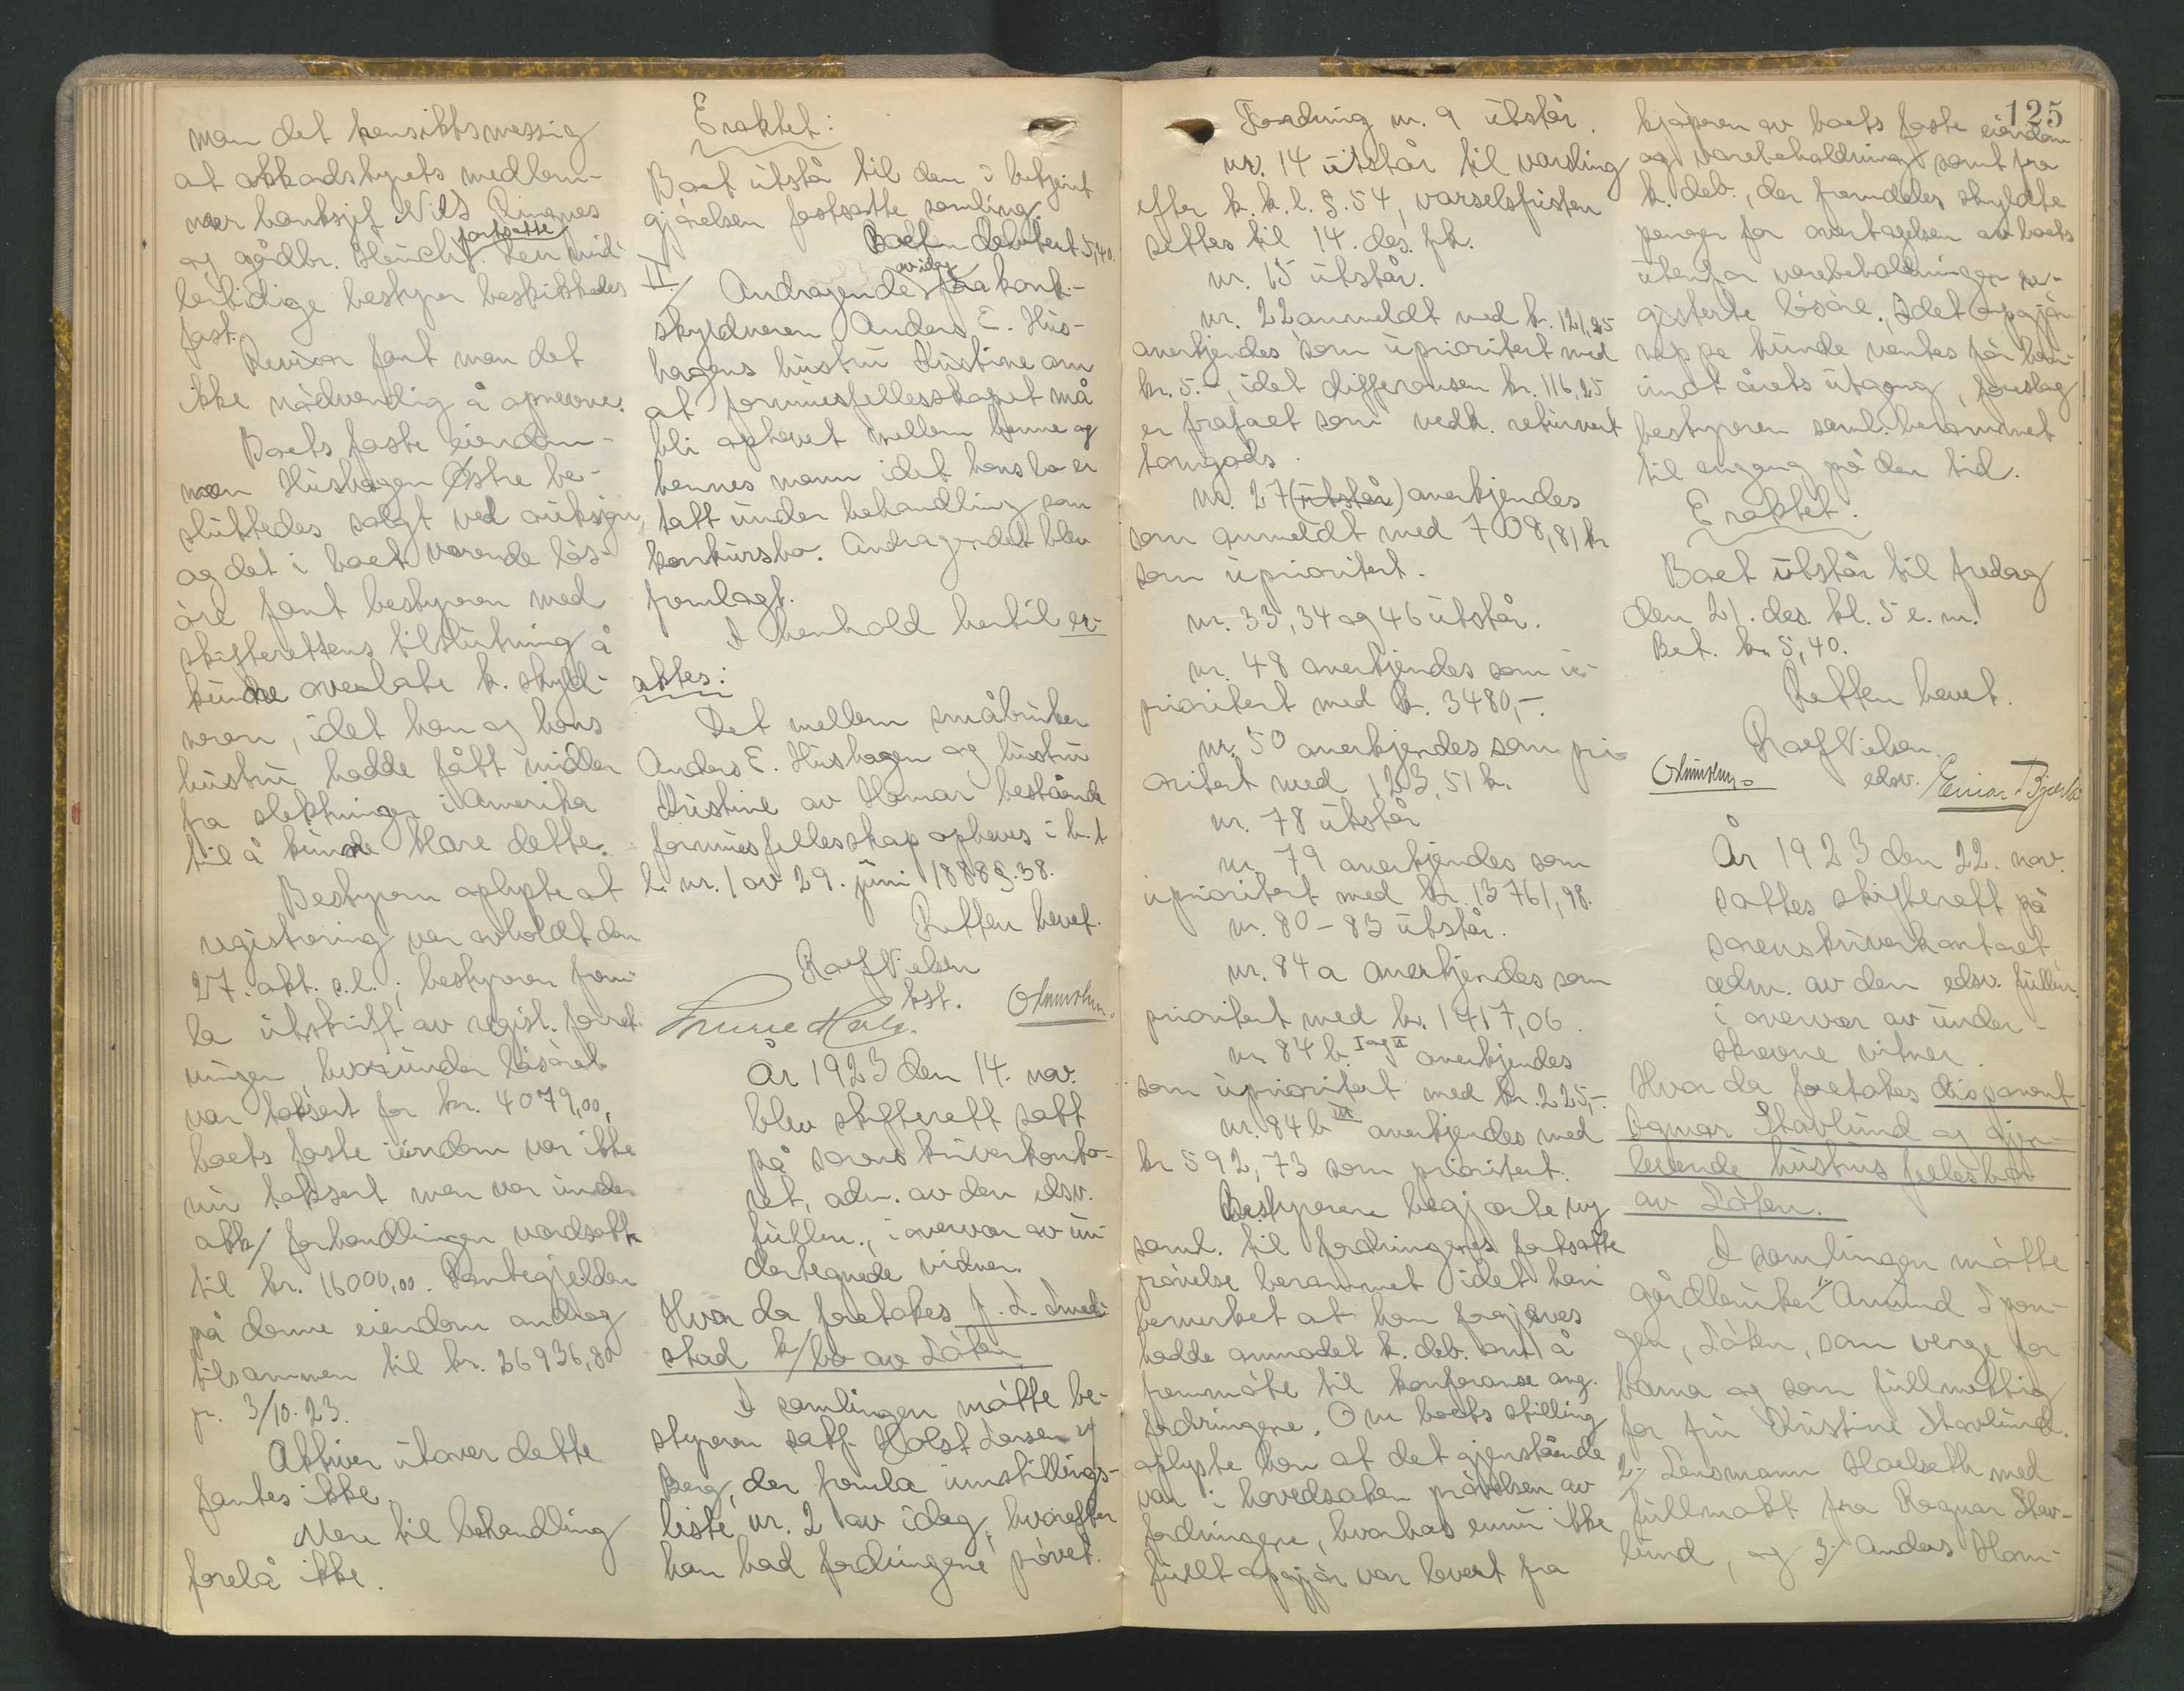 man det hensiktsmessig
at akkordstyrets medlem-
mer banksjef Nils Ringnes
og gårdbr. fortsatte. Den mid-
lertidige bestyrer beskikkedes
fast.
Revisor fant man det
ikke nødvendig å opnevne.
Boets faste eiendom-
men Hushagen Østre be-
sluttedes solgt ved auksjon,
og det i boet værende løs-
øre fant bestyreren med
skifterettens tilslutning å
kunne overlate k. skyld-
neren, idet han og hans
hustru hadde fått midler
fra slektninger i Amerika
til å kunne klare dette.
Bestyreren oplyste at
registrering var avholdt den
27. okt. s.l.; bestyreren frem-
la utskrift av regist. forret-
ningen, hvorunder løsøret
var taksert for kr. 4079,00,
boets faste eiendom var ikke
nu taksert men var under
akk/ forhandlingen verdsatt
til kr. 16000,00. Pantegjelden
på denne eiendom androg
tilsammen til kr. 26936,80
pr. 3/10. 23.
Aktiver utover dette
fantes ikke.
Mere til behandling
forelå ikke.
Eraktet:
Boet utstår til den i bekjent
gjørelsen fastsatte samling.
Boet debitert 5,40.
II/ Andragende av idag fra konk.-
skyldneren Anders E. Hus-
hagens hustru Kristine om
at formuesfellesskapet må
bli ophevet mellem henne og
hennes mann idet hans bo er
tatt under behandling som
konkursbo. Andragendet blev
fremlagt.
I henhold hertil er-
aktes:
Det mellem småbruker
Anders E. Hushagen og hustru
Kristine av Hamar bestående
formuesfellesskap opheves i h. t
l. nr. 1 av 29. juni 1888 §. 38.
Retten hevet.
Rolf Nielsen
kst.
År 1923 den 14. nov.
blev skifterett satt
på sorenskriverkonto-
ret, adm. av den edsv.
fullm., i overvær av un-
dertegnede vidner.
Hvor da foretakes J. L. Smed-
stad k/bo av Løten
I samlingen møtte be-
styreren sakf. Holst Larsen v/
Berg, der fremla innstillings-
liste nr. 2 av idag, hvorefter
han bad fordringene prøvet.
125
Fordring nr. 9 utstår.
nr. 14 utstår til varsling
efter k. k. l. §. 54, varselsfristen
settes til 14. des. fk.
nr. 15 utstår.
nr. 22 anmeldt med kr. 121,25
anerkjendes som uprioritert med
kr. 5.-, idet differansen kr. 116,25
er frafaldt som vedk. returnert
tomgods.
nr. 27 (utstår) anerkjendes
som anmeldt med 708,81 kr
som uprioritert.
nr. 33, 34 og 46 utstår.
nr. 48 anerkjendes som u-
prioritert med kr. 3480,-.
nr. 50 anerkjendes som pri-
oritert med 123,51 kr.
nr. 78 utstår
nr. 79 anerkjendes som
uprioritert med kr. 13761,98.
nr. 80 - 83 utstår.
nr. 84 a anerkjendes som
prioritert med kr. 1417,06.
nr. 84 b. I og II anerkjendes
som uprioritert med kr. 225,-.
nr. 84 b III anerkjendes med
kr 592,73 som prioritert.
Bestyreren begjærte ny
saml. til fordringenes fortsatte
prøvelse berammet idet han
bemerket at han forgjæves
hadde anmodet k. deb. om å
fremmøte til konferanse ang.
fordringene. Om boets stilling
oplyste han at det gjenstående
var i hovedsaken prøvelsen av
fordringene, hvorhos ennu ikke
fullt opgjør var levert fra
kjøperen av boets faste eiendom
og varebeholdning samt fra
k. deb., der fremdeles skyldte
penger for overtagelsen av boets
utenfor varebeholdningen re-
gisterte løsøre. Idet opgjør
neppe kunde ventes før hen-
imot årets utgang, foreslog
bestyreren saml. berammet
til engang på den tid.
Eraktet:
Boet utstår til fredag
den 21. des. kl. 5 e. m.
Bet. kr. 5,40.
Retten hevet.
Rolf Nielsen
edsv. Einar Bjerke
År 1923 den 22. nov.
sattes skifterett på
sorenskriverkontoret,
adm. av den edsv. fullm.
i overvær av under-
skrevne vitner.
Hvor da foretakes disponent
Ragnar Stavlund og gjen-
levende hustrus fellesbo
av Løten.
I samlingen møtte
gårdbruker 1/ Amund Spon-
gen, Løten, som verge for
barna og som fullmektig
for fru Kristine Stavlund.
2/ Lensmann Hoelseth med
fullmakt fra Ragnar Stav-
lund, og 3/ Anders Ham-